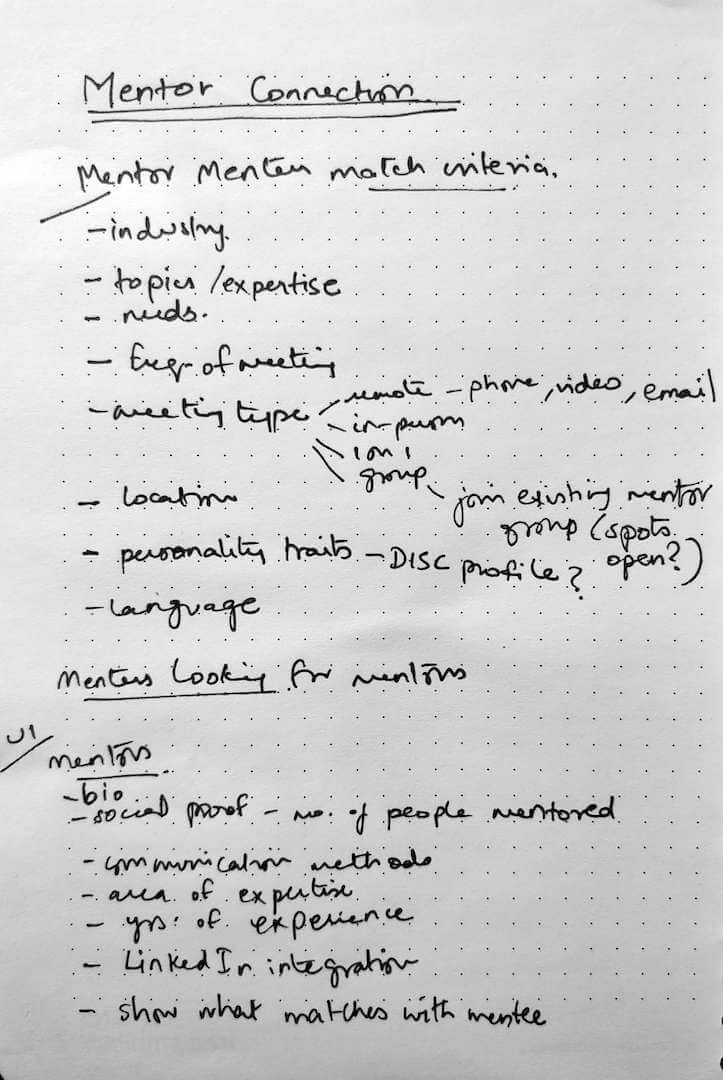 Mentor Connection
Mentor Mentee match criteria.
- industry.
- topics / expertise
- needs.
- freq. of meeting
- meeting type remote - phone, video, email
in-person
1 on 1
group
- location
join existing mentor
group (spots
open?)
- personality traits - DISC profile?
- language
Mentees Looking for mentors
UI
mentors
- bio
- social proof - no. of people mentored
- communication methods
- area of expertise
- yrs. of experience
- LinkedIn integration
- show what matches with mentee